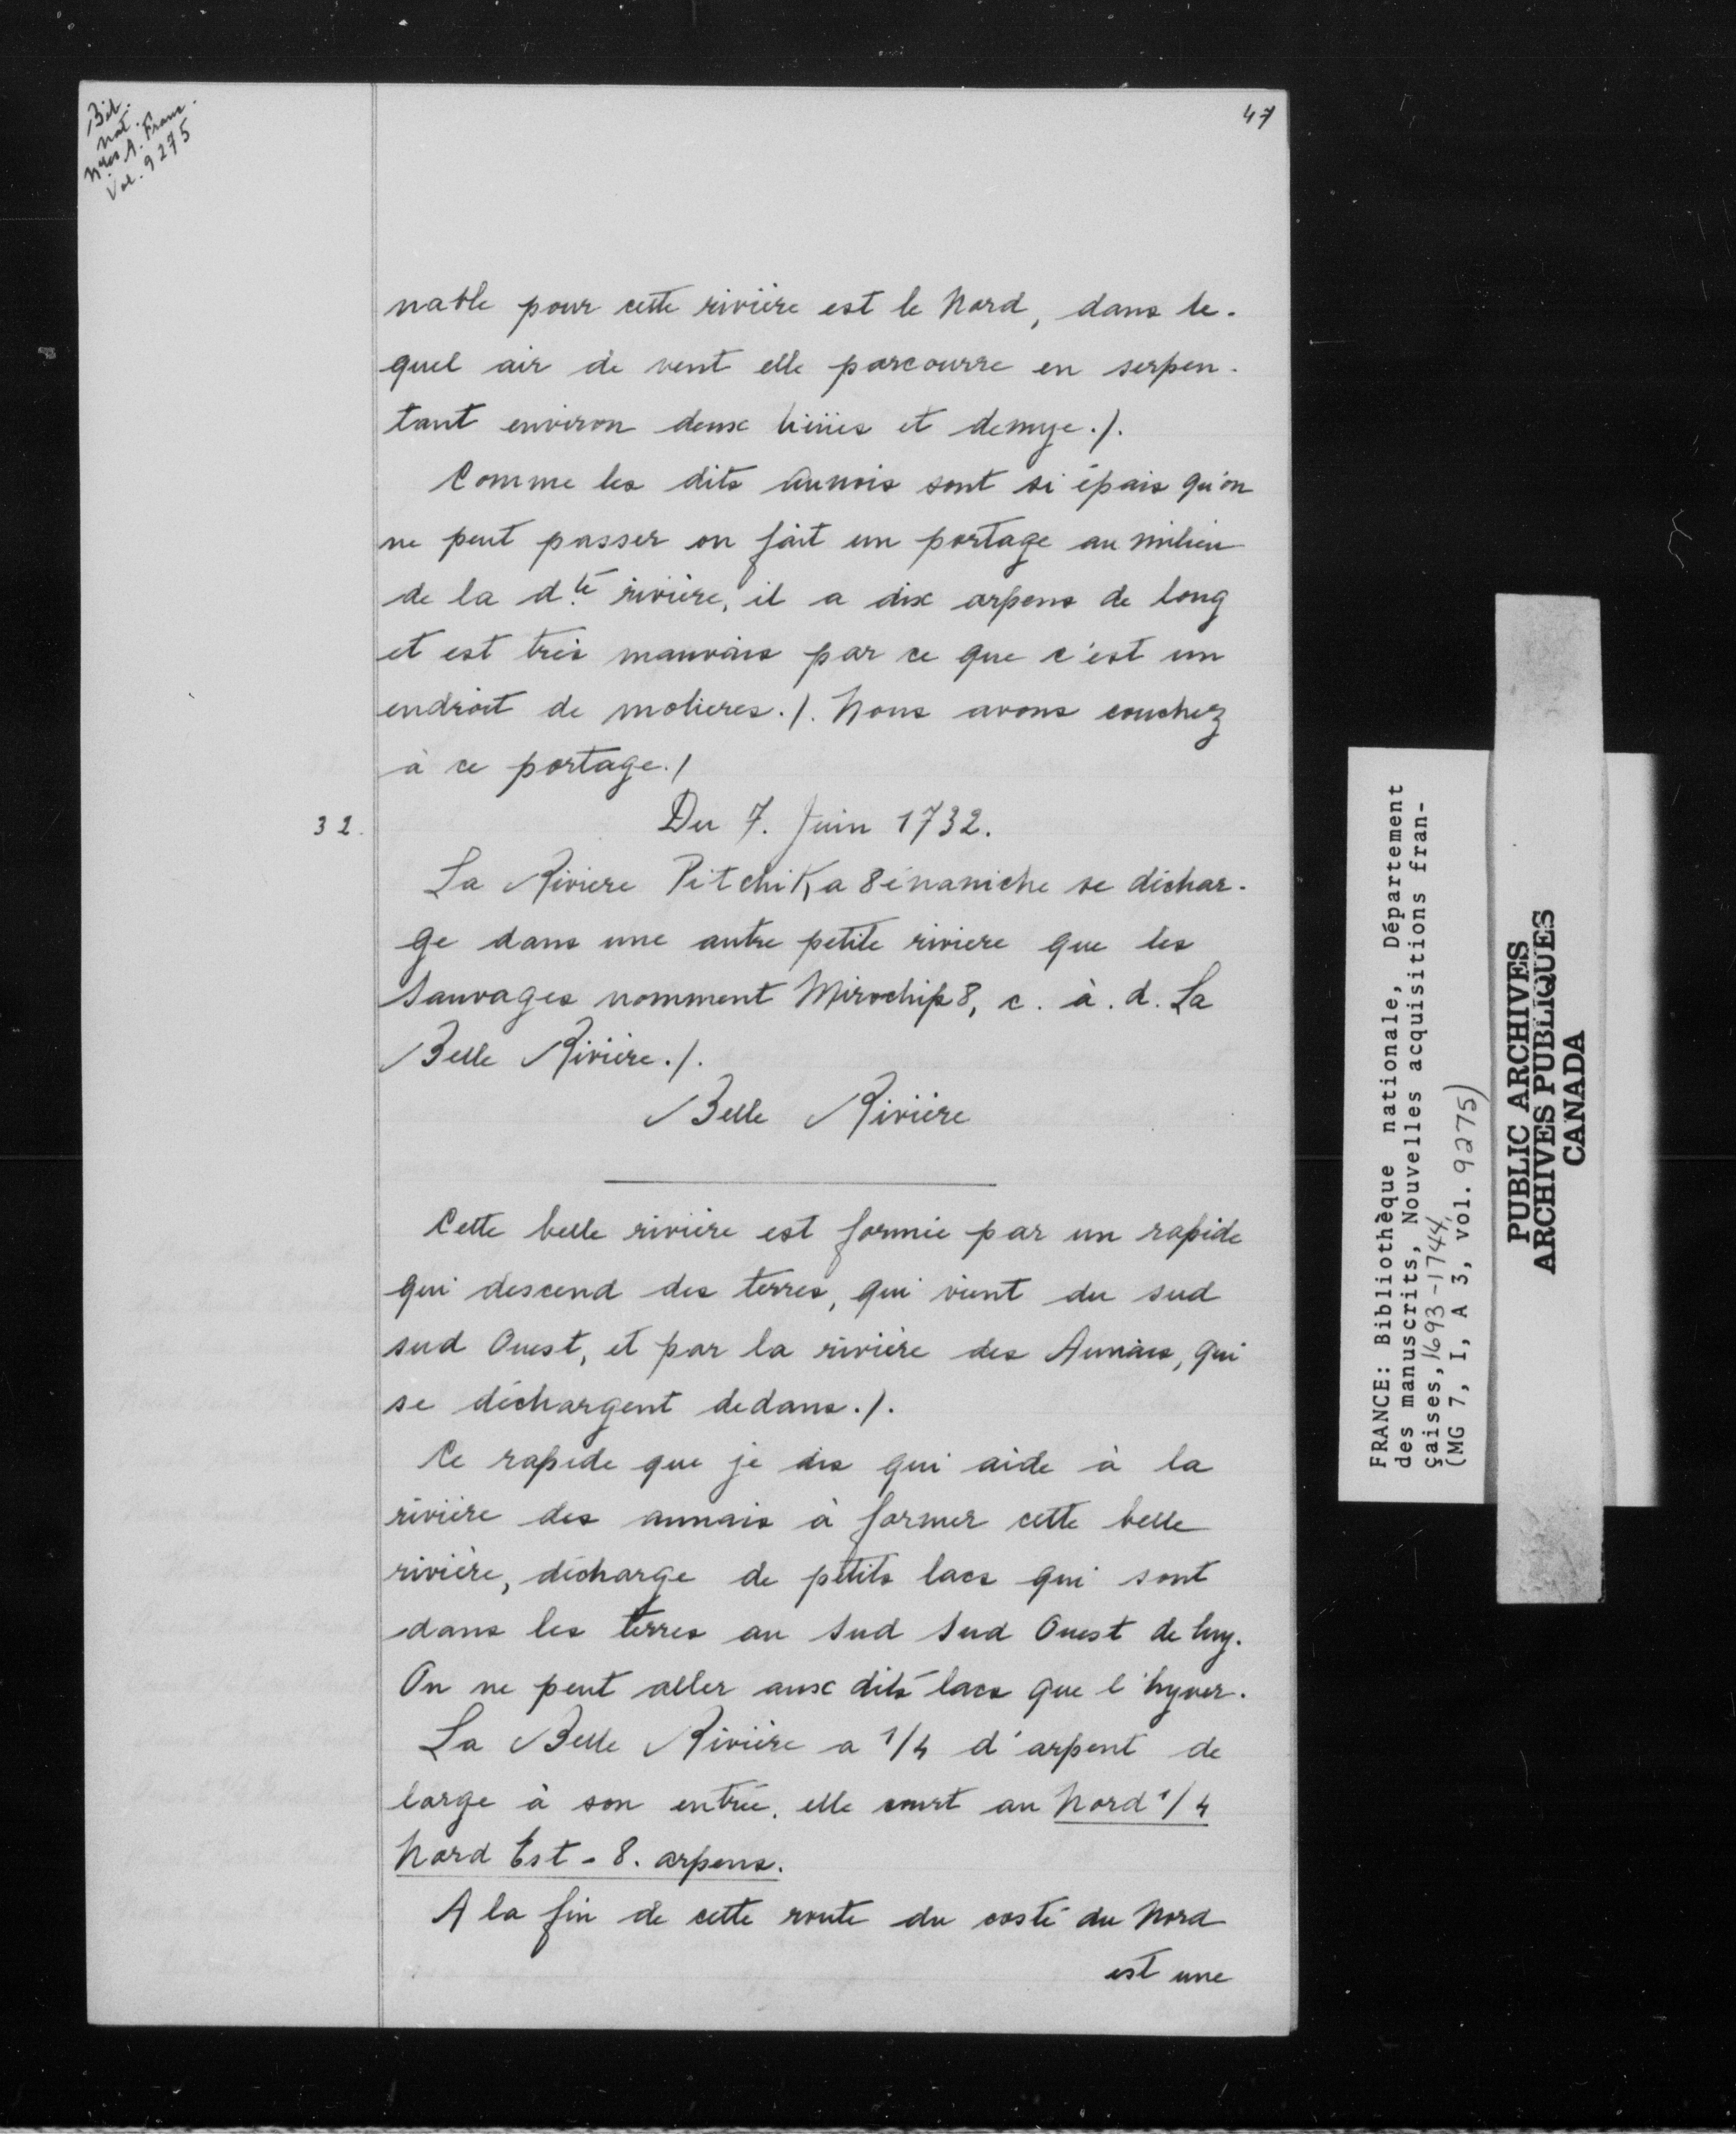 Bib.
nat.
Nles A. Franc.
Vol. 9275
47
nable pour cette rivière est le Nord, dans le-
quel air de vent elle parcourre en serpen-
tant environ deux liëues et demye./.
Comme les dits aunois sont si épais qu'on
ne peut passer on fait un portage au milieu
de la d.te rivière, il a dix arpens de long
et est très mauvais par ce que c'est un
endroit de molieres./. Nous avons couchez
à ce portage./
32.
Du 7. Juin 1732.
La Riviere PitchiKa8énaniche se déchar-
ge dans une autre petite riviere que les
Sauvages nomment Mirochip8, c. à. d. La
Belle Rivière./.
Belle Rivière
Cette belle rivière est formée par un rapide
qui descend des terres, qui vient du sud
sud Ouest, et par la rivière des Aunais, qui
se déchargent dedans./.
Ce rapide que je dis qui aide à la
rivière des aunais à former cette belle
rivière, décharge de petits lacs qui sont
dans les terres au Sud Sud Ouest de luy.
On ne peut aller aux dits lacs que l'hyver.
La Belle Rivière a 1/4 d'arpent de
large à son entrée. elle court au Nord 1/4
Nord Est - 8. arpens.
A la fin de cette route du costé du Nord
est une
FRANCE: Bibliothèque nationale, Département
des manuscrits, Nouvelles acquisitions fran-
çaises, 1693-1744
(MG 7, I, A 3, vol. 9275)
PUBLIC ARCHIVES
ARCHIVES PUBLIQUES
CANADA